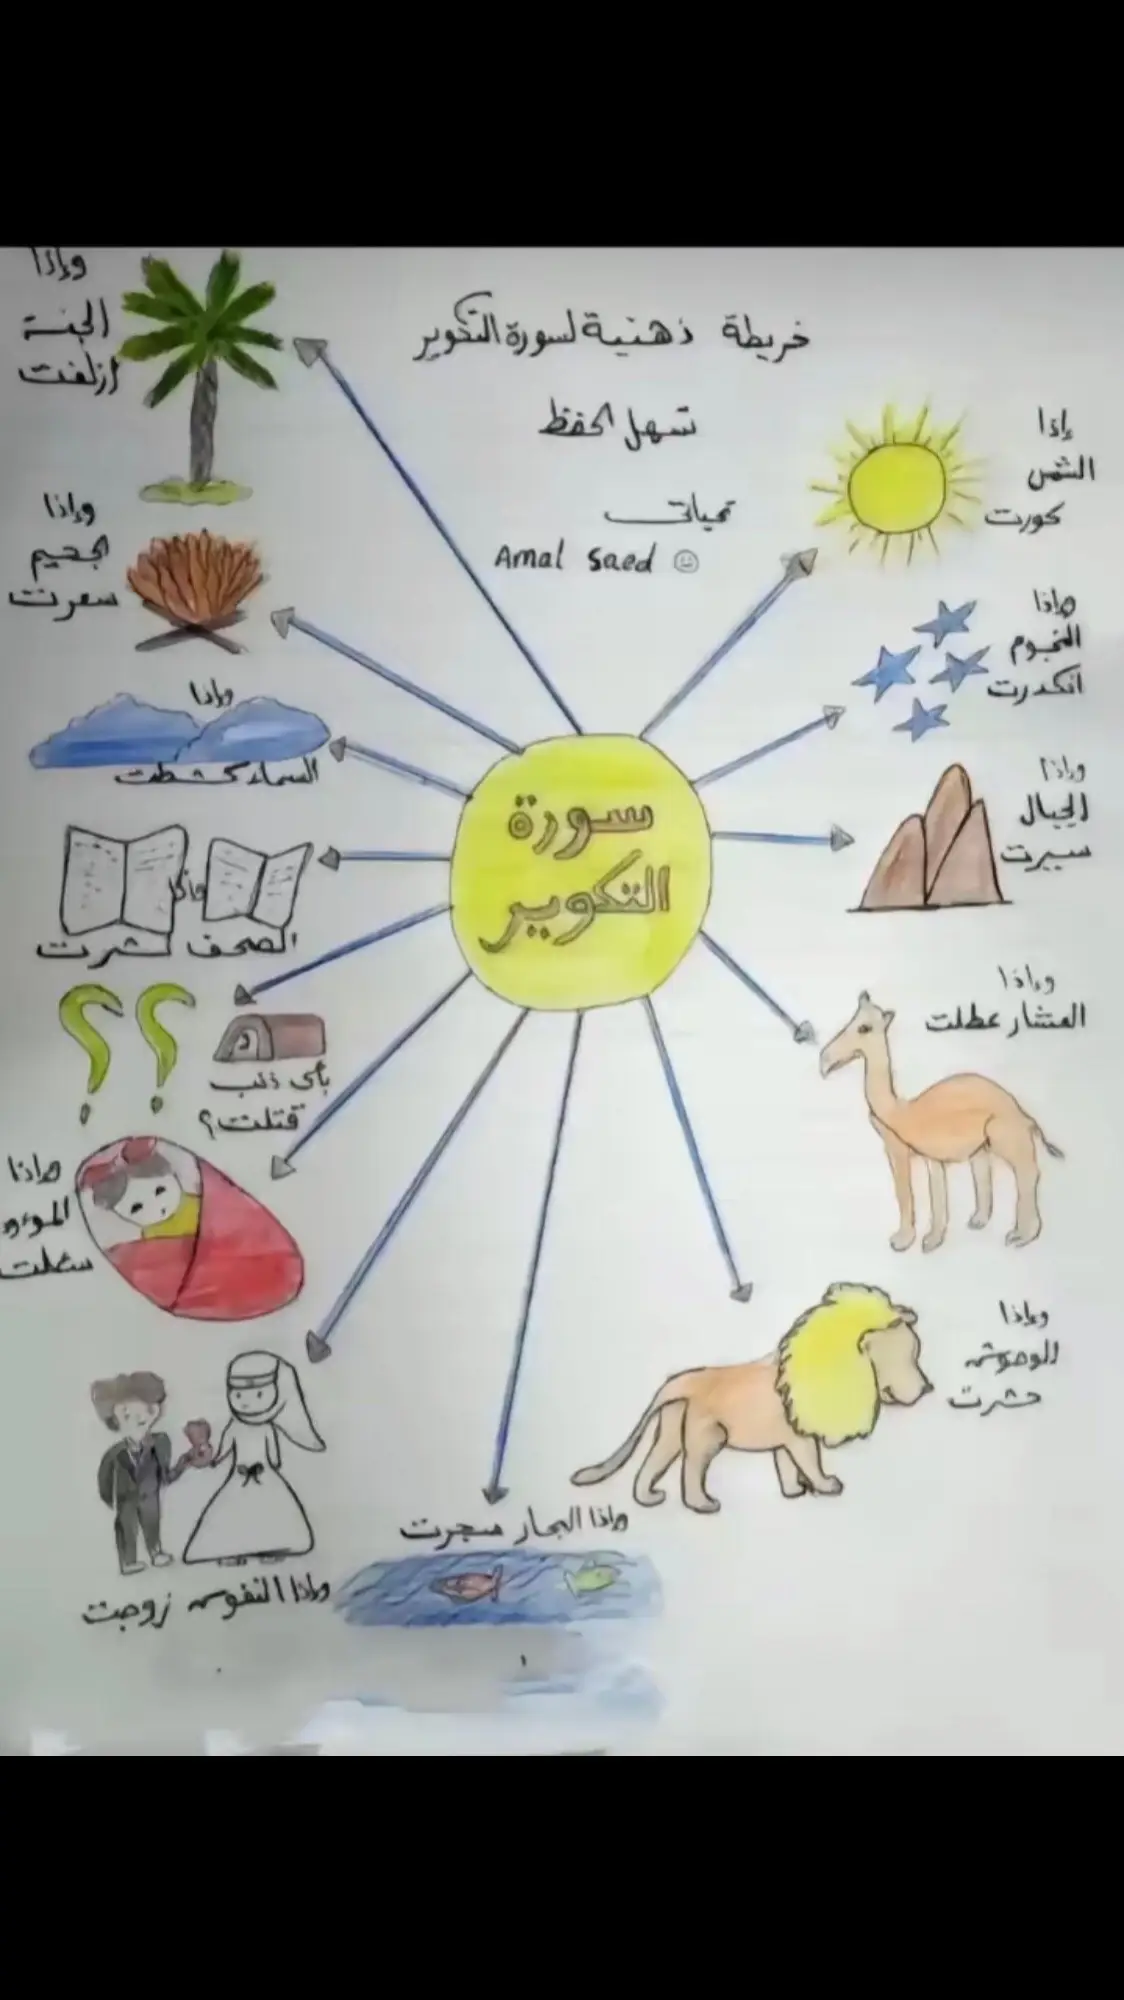 خريطة ذهنية لسورة التكوير
تسهل الحفظ
تحياتى
Amal Saed
سورة
التكوير
إذا
الشمس
كورت
وإذا
النجوم
انكدرت
وإذا
الجبال
سيرت
وإذا
العشار عطلت
وإذا
الوحوش
حشرت
وإذا البحار سجرت
وإذا النفوس زوجت
وإذا
الموءو
سئلت
بأى ذنب
قتلت؟
وإذا
الصحف نشرت
وإذا
السماء كشطت
وإذا
الجحيم
سعرت
وإذا
الجنة
ازلفت